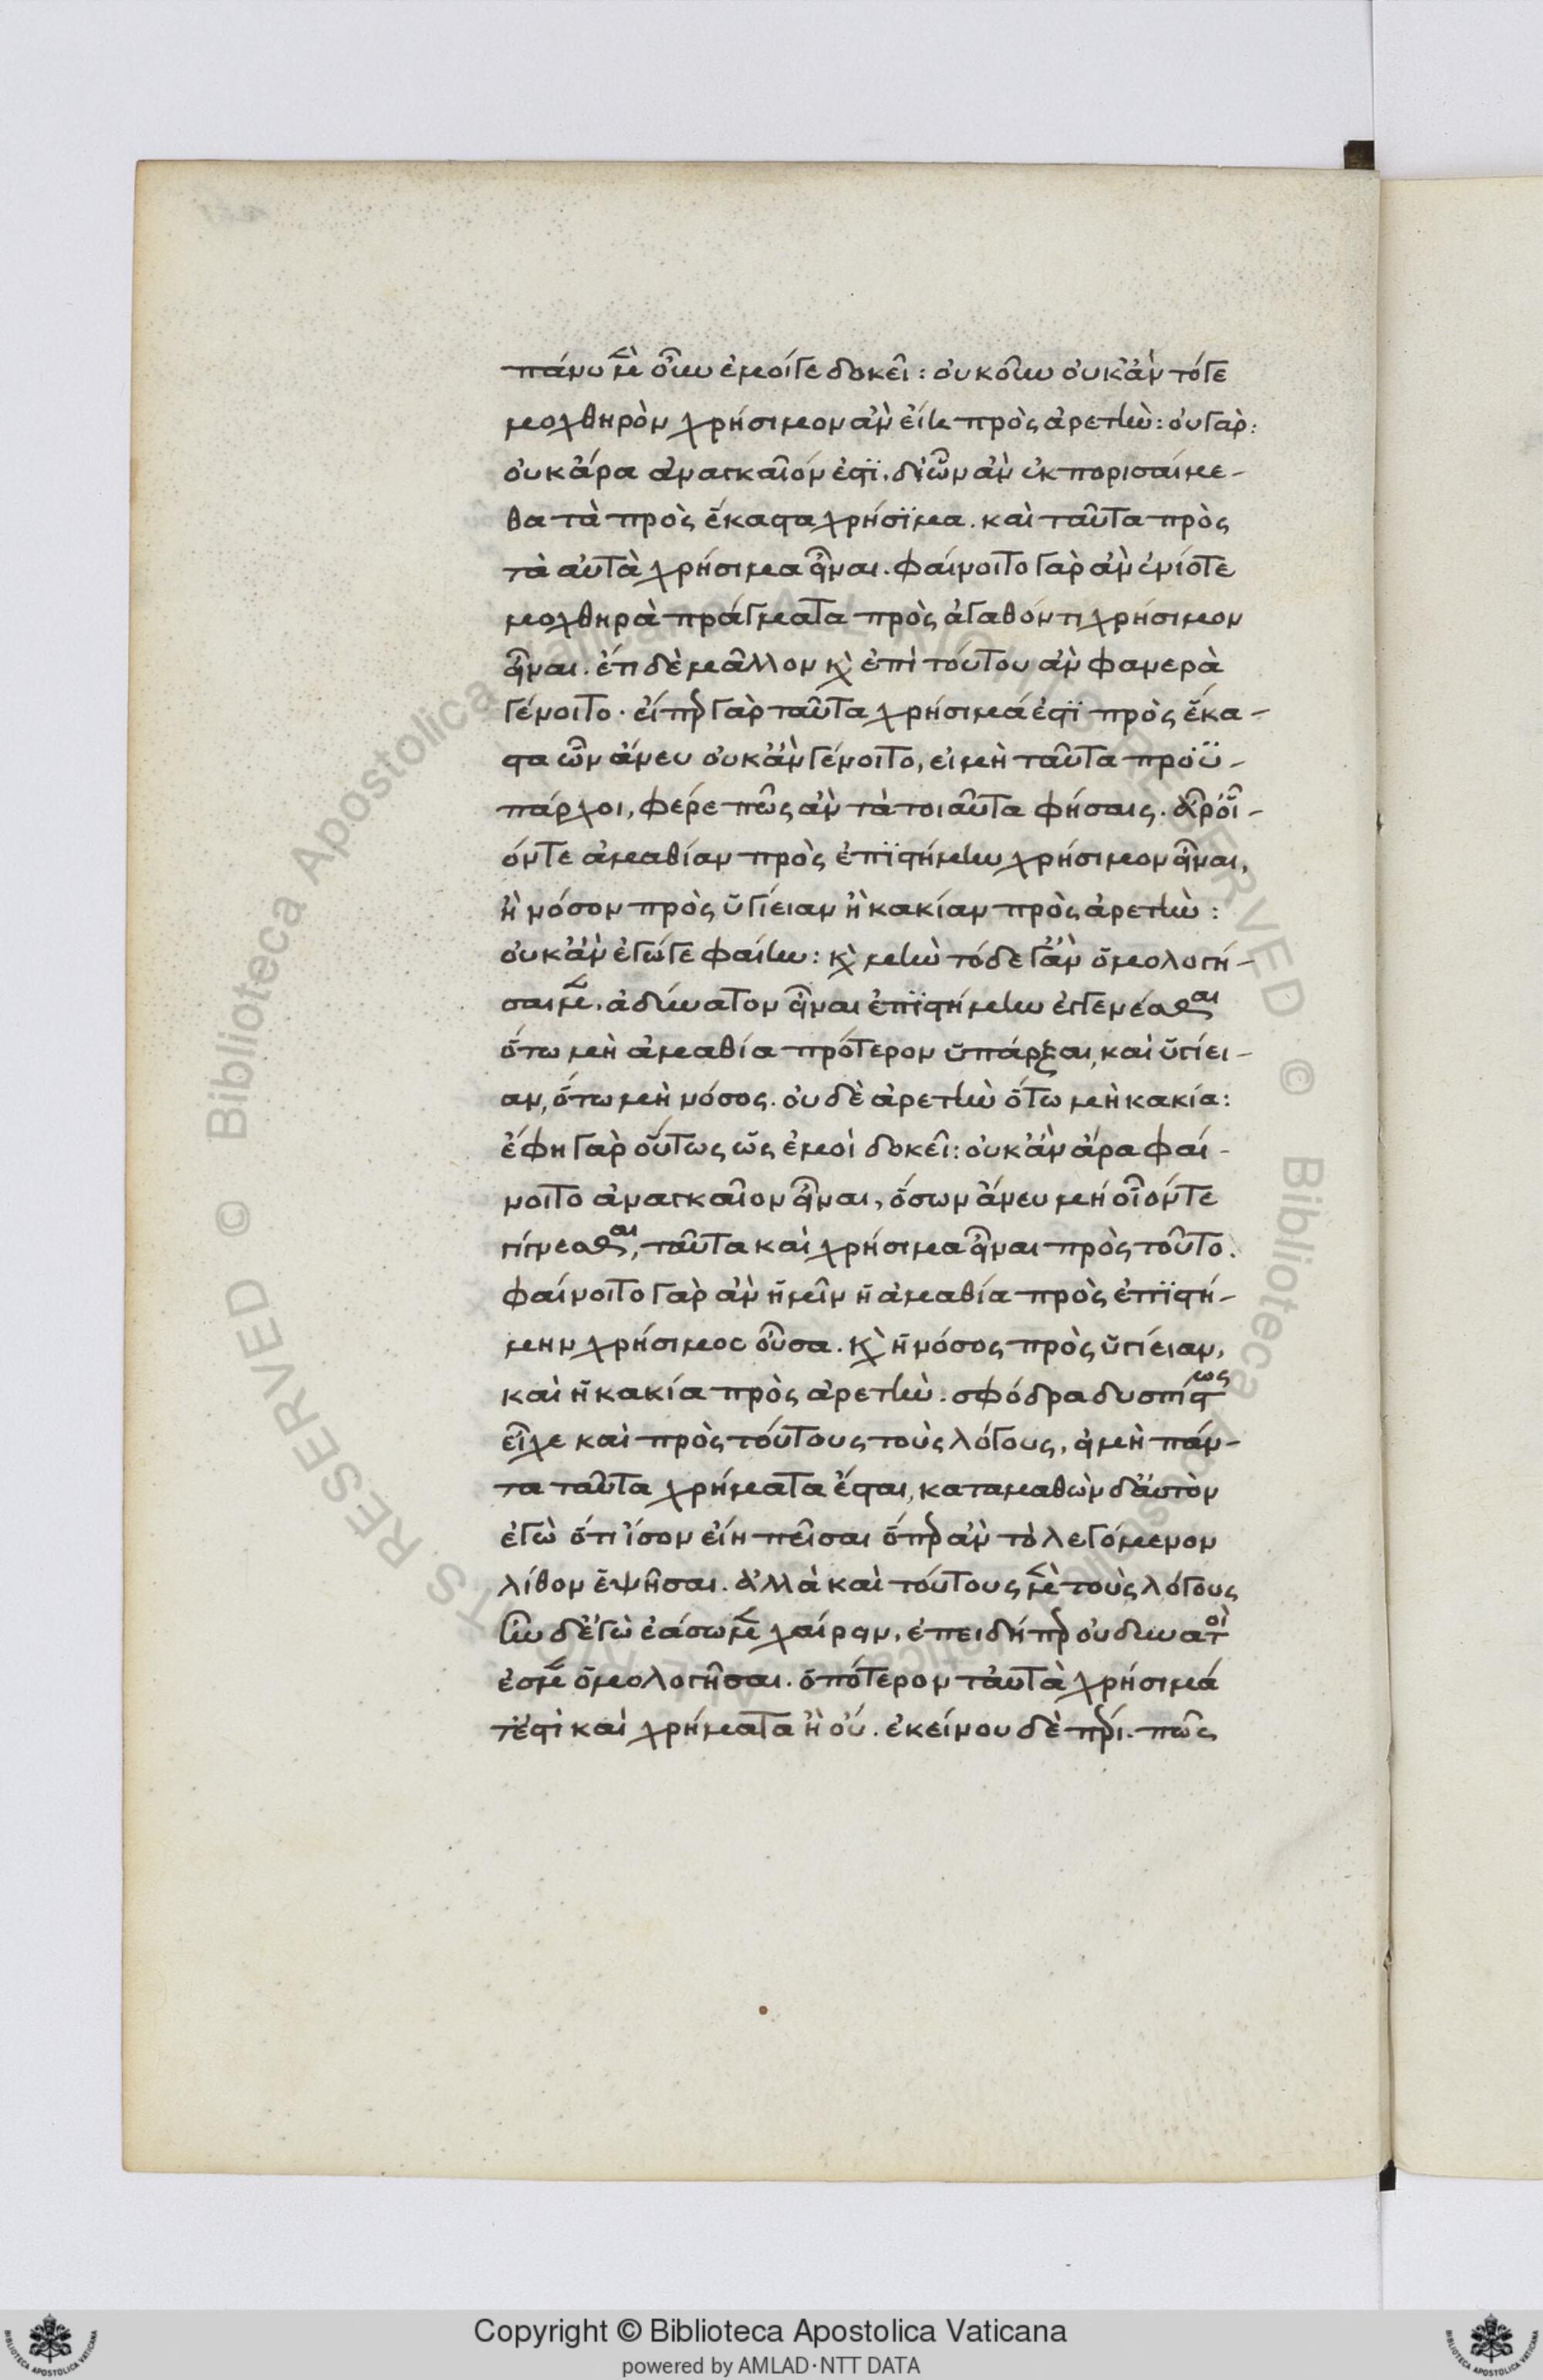 πάνυ μὲν οὖν ἐμοίγε δοκεῖ: οὐκοῦν οὐκἂν τότε
μοχθηρὸν χρήσιμον ἂν εἴη πρὸς ἀρετὴν: οὐ γὰρ:
οὐκ ἄρα ἀναγκαῖόν ἐστϊ. δι᾽ ὧν ἂν ἐκπορισαίμε-
θα τὰ πρὸς ἕκαστα χρήσϊμα. καὶ ταῦτα πρὸς
τὰ αὐτὰ χρήσιμα εἶναι. φαίνοιτο γὰρ ἂν ἐνίοτε
μοχθηρὰ πράγματα πρὸς ἀγαθόν τι χρήσιμον
εἶναι. ἔτι δὲ μᾶλλον καὶ ἐπὶ τούτου ἂν φανερὰ
γένοιτο. εἴπερ γὰρ ταῦτα χρήσιμά ἐστϊ πρὸς ἕκα-
στα ὧν ἄνευ οὐκἂν γένοιτο, εἰ μὴ ταῦτα προϋ-
πάρχοι, φέρε πῶς ἂν τὰ τοιαῦτα φήσαις. ἆρ᾽ οἷ-
όντε ἀμαθίαν πρὸς ἐπϊστήμην χρήσιμον εἶναι,
ἢ νόσον πρὸς ὑγίειαν ἢ κακίαν πρὸς ἀρετὴν:
οὐκἂν ἐγώγε φαίην: καὶ μὴν τόδε γ᾽ ἂν ὁμολογή-
σαιμεν. ἀδύνατον εἶναι ἐπϊστήμην ἐγγενέσθαι
ὅτω μὴ ἀμαθία πρότερον ὑπάρξαι, καὶ ὑγίει-
αν, ὅτω μὴ νόσος. οὐδὲ ἀρετὴν ὅτω μὴ κακία:
ἔφη γὰρ οὕτως ὥς ἐμοὶ δοκεῖ: οὐκἂν ἄρα φαί-
νοιτο ἀναγκαῖον εἶναι, ὅσων ἄνευ μή οἷόντε
γίγνεσθαι, ταῦτα καὶ χρήσιμα εἶναι πρὸς τοῦτο.
φαίνοιτο γὰρ ἂν ἡμῖν ἡ ἀμαθία πρὸς ἐπϊστή-
μην χρήσιμος οὖσα. καὶ ἡ νόσος πρὸς ὑγίειαν,
καὶ ἡ κακία πρὸς ἀρετὴν. σφόδρα δυσπίστως
εἶχε καὶ πρὸς τούτους τοὺς λόγους, εἰ μὴ πάν-
τα ταῦτα χρήματα ἔσται, καταμαθὼν δ᾽ αὐτὸν
ἐγὼ ὅτι ἴσον εἴη πεῖσαι ὅπερ ἂν τὸ λεγόμενον
λίθον ἑψῆσαι. ἀλλὰ καὶ τούτους μὲν τοὺς λόγους
νῦν δ᾽ ἐγὼ ἐάσωμεν χαίρειν, ἐπειδήπερ οὐ δυνατοὶ
ἐσμὲν ὁμολογῆσαι. ὁπότερον ταὐτὰ χρήσιμά
τ᾽ ἐστὶ καὶ χρήματα ἢ οὔ. ἐκείνου δὲ πέρι. πῶς
Copyright © Biblioteca Apostolica Vaticana
powered by AMLAD·NTT DATA